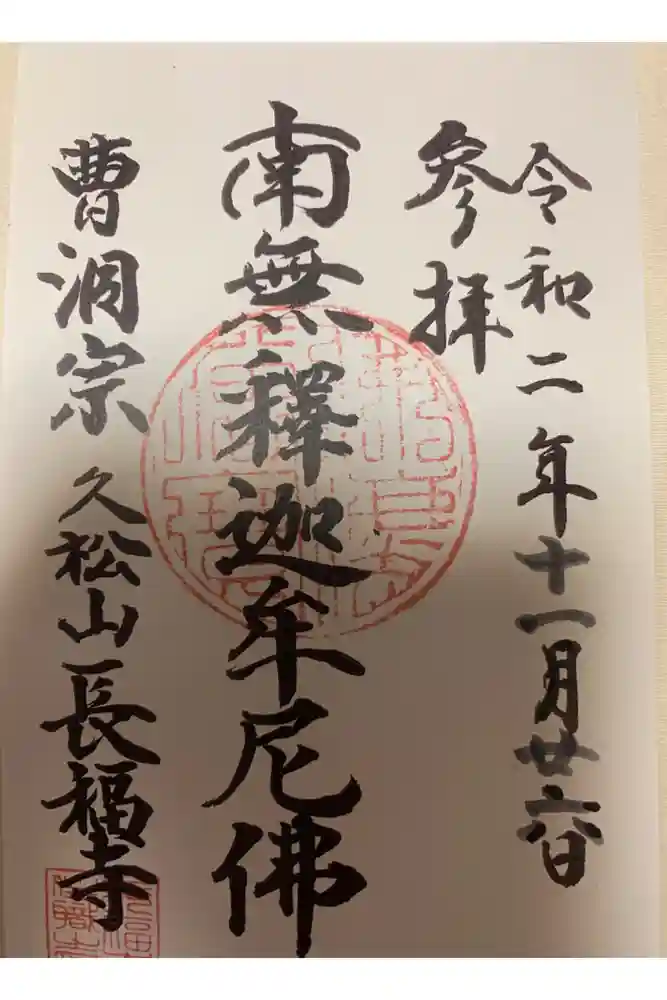 令和二年十一月廿六日
参拝
南無釋迦牟尼佛
曹洞宗 久松山長福寺